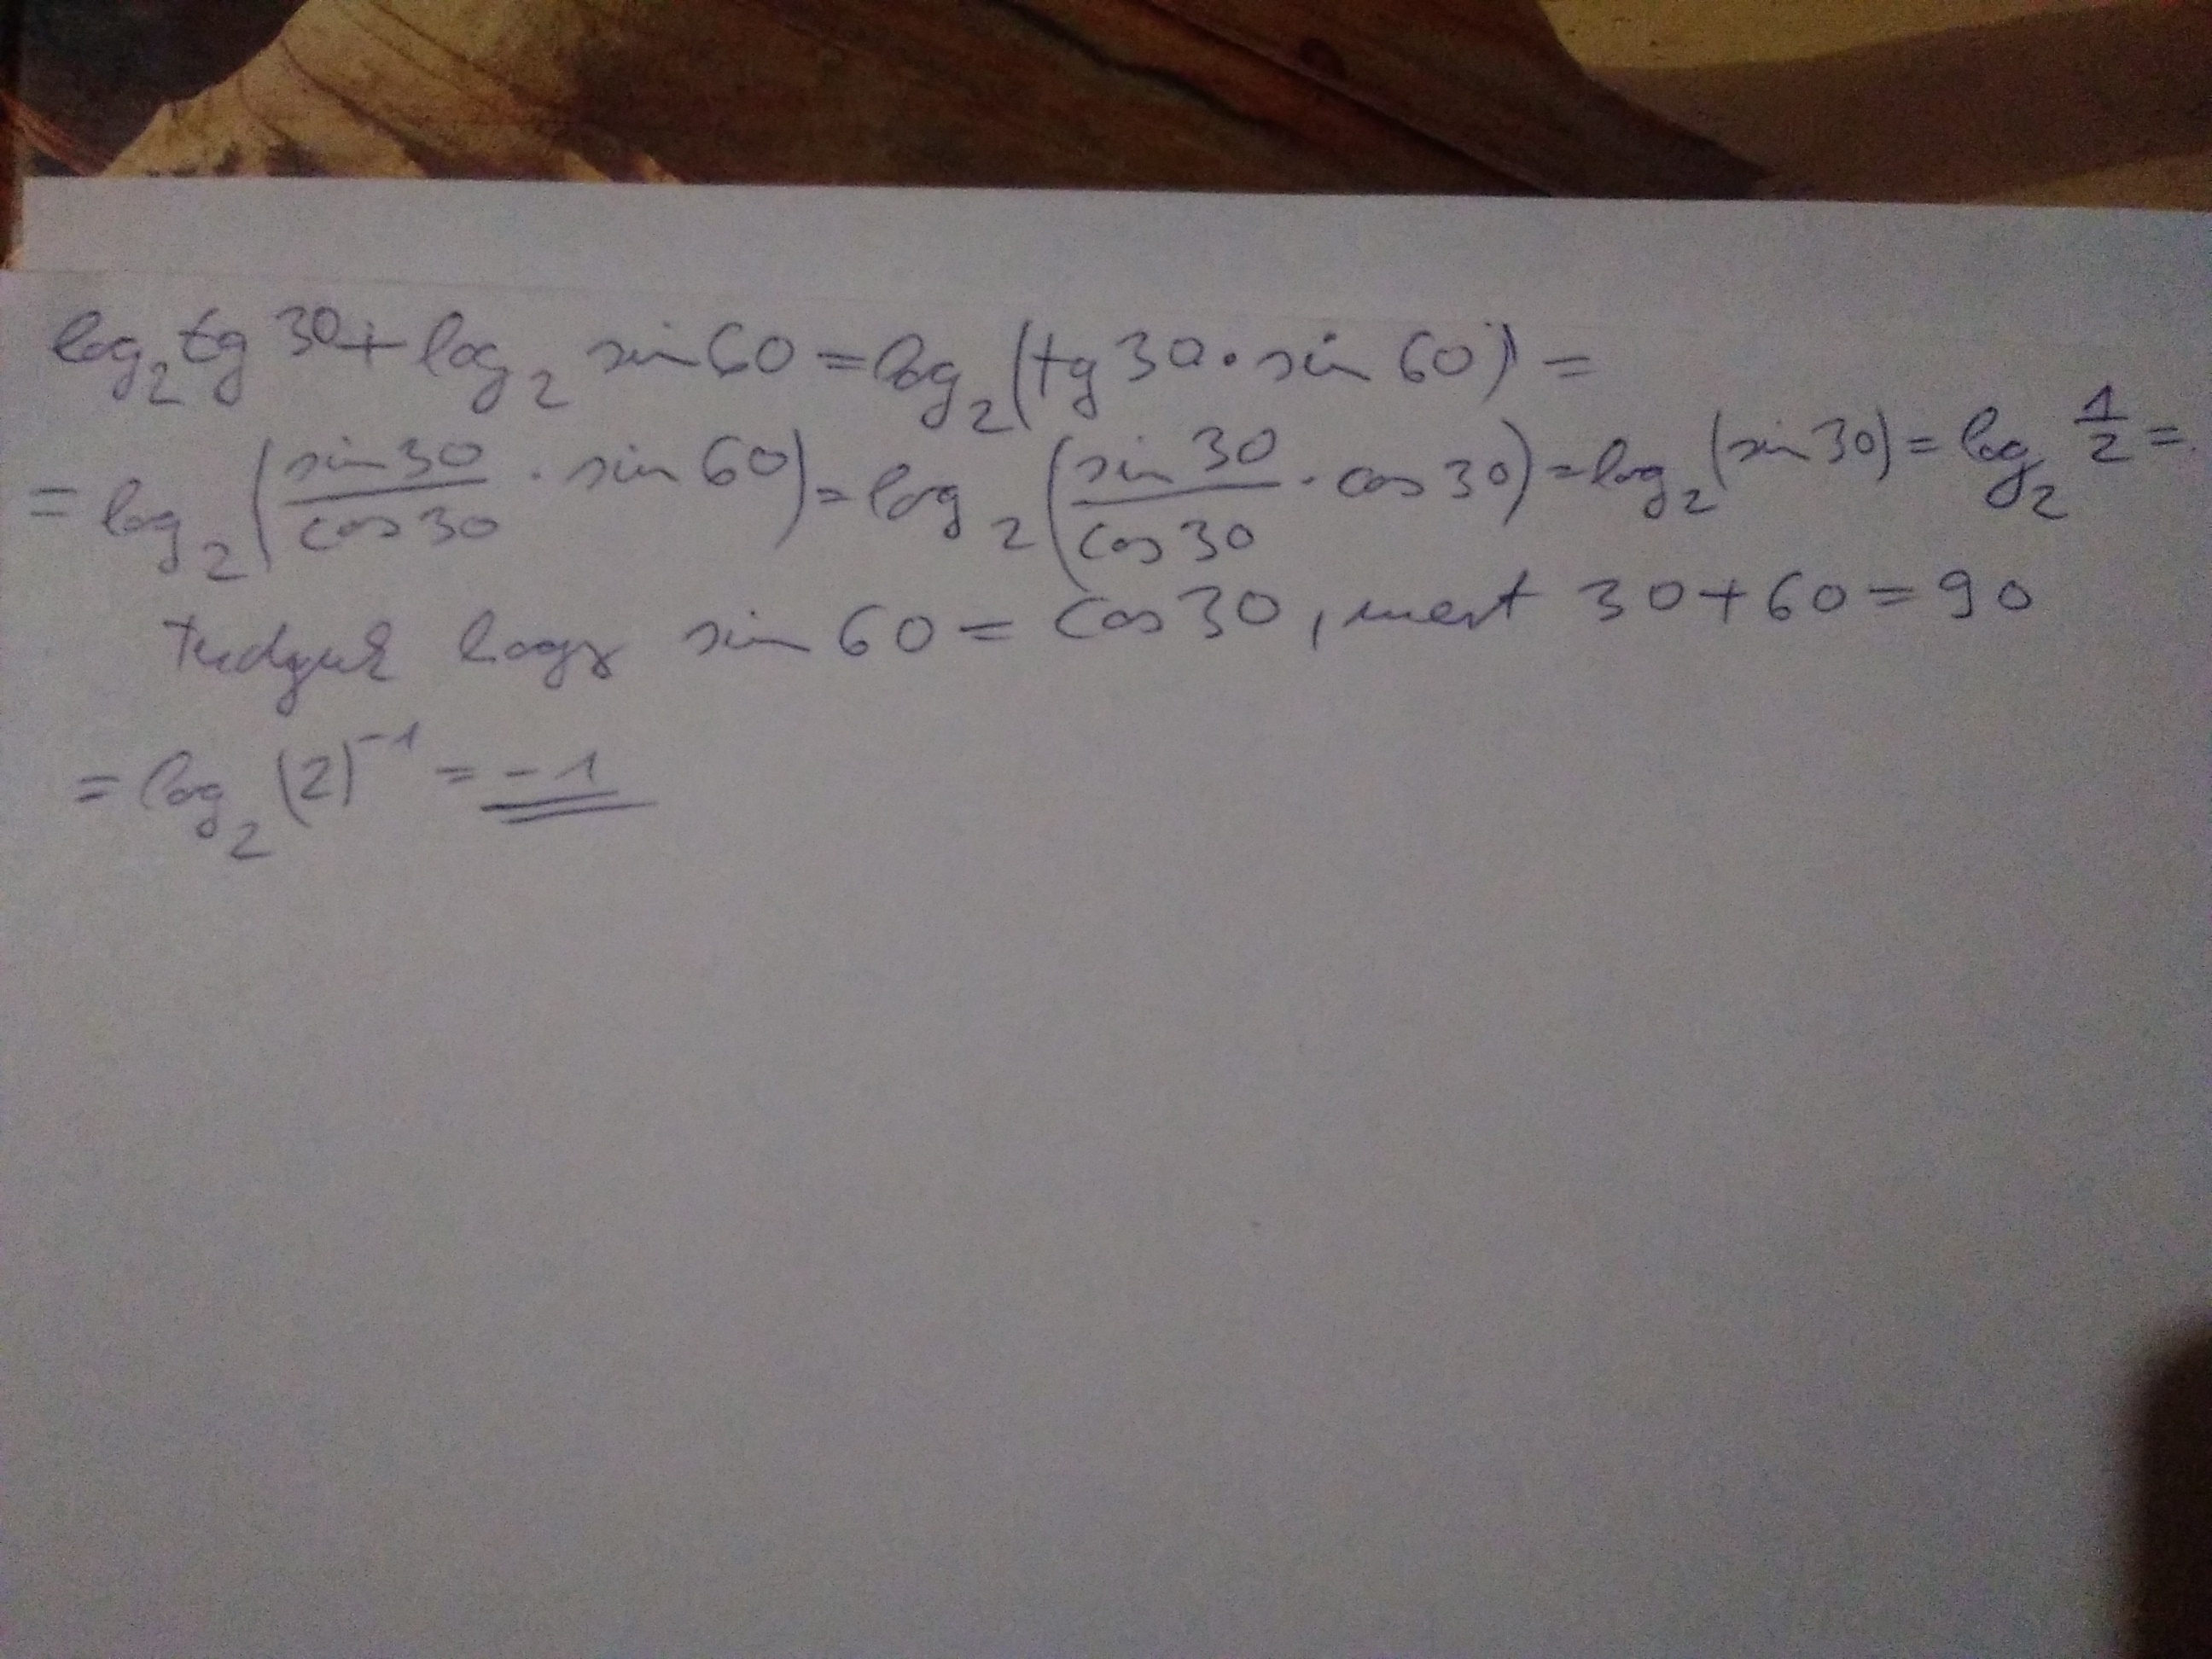 log₂ tg 30 + log₂ sin 60 = log₂ (tg 30 · sin 60) =
= log₂ (sin 30 / cos 30 · sin 60) = log₂ (sin 30 / cos 30 · cos 30) = log₂ (sin 30) = log₂ 1/2 =
Tudjuk hogy sin 60 = cos 30, mert 30 + 60 = 90
= log₂ (2)⁻¹ = -1